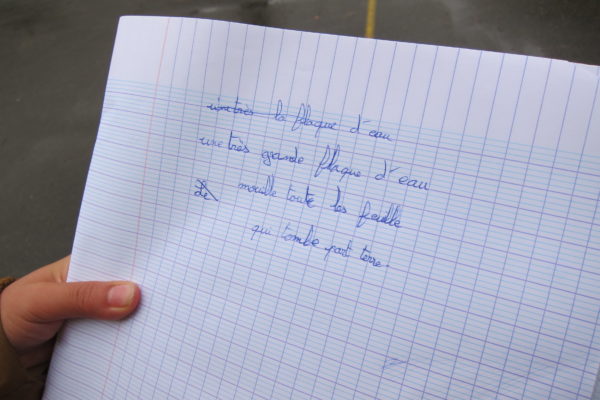 une très la flaque d'eau
une très grande flaque d'eau
de mouille toute les feuille
qui tombe part terre.